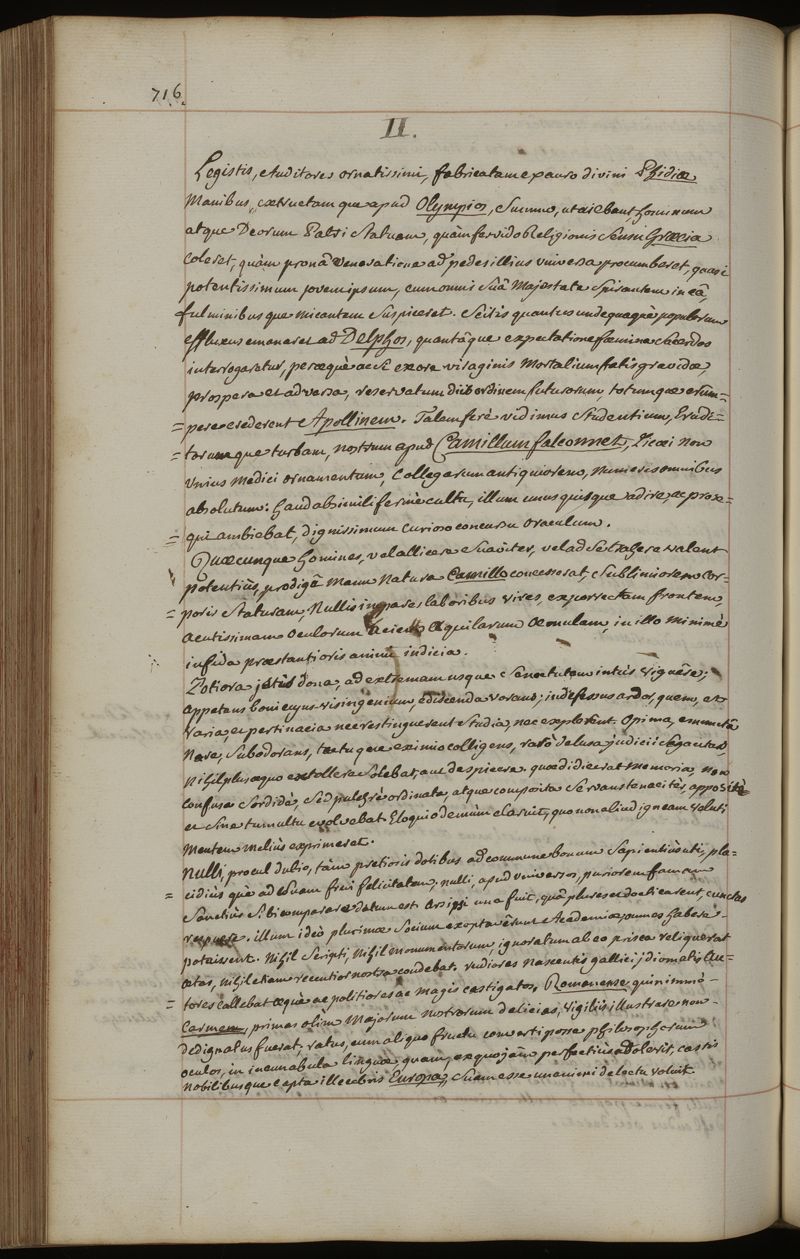 716.
II.
Legistis, Auditores ornatissimi, fabricatam ex auro divini Phidiæ
Manibus, exstructamque apud Olympios, Summi, ut aiebant, hominum
atque Deorum Patris Statuam, quàm fervido Religionis sensu Græcia
Coleret, quàm pronâ Veneratione ad pedes illius universa procumberet, quasi
potentissimum jovem ipsum, cum omni suâ Majestate spirantem in eâ,
fulminibusque micantem suspiceret. Scitis quantus undequaquè populorum
effluxus emanaret ad Delphos, quantâque expectatione fœmina Sacerdos
interrogaretur, peræquè ac si ex ore viraginis Mortalium fatis gravidæ,
prospera et adversa, reservatum diù ordinem futurorum, totumque erum=
=pere crederent Apollinem. Talem ferè vidimus Studentium, Erudi=
=torumque turbam, nostrum apud Camillum falconnet, Dicæi non
Unius Medici ornamentum, Collegarum antiquiorem, numeris omnibus
absolutum: haud absimili fermè cultu, illum unusquisque adire, ac prose=
=qui ambiebat, dignissimum curioso concursu oraculum.
Quæcunque homines, vel allicere suaviter, vel ad se trahere valent
potentiùs, prodigâ manu Natura Camillo concesserat, Sublimiorem cor=
=poris Staturam, Nullis impares laboribus vires, exporrectam frontem,
acutissimam oculorum aciem Aquilarum Æmulam, in illo minimè
infida præstantioris animi indicia.
Potiora jstis dona, ad extremam usque Senectutem intùs viguêre;
Appetens boni cujusvis ingenium, ediscenda vorans; indefessus ardor, quem, et
Varia, et pertinacia nec restinguerent studia, nec explerent. Opima, emunctâ
Nare, Subodorans, tactuque eximio colligens, rarò delusa judicii sagacitas,
Nihil plus æquo extollere solebat, aut despicere. quæ didicerat memoria, non
Confusa sordidè, sed pulchrè ordinata, atque composita servans tenaciter, appositè
et sine tumultu evolvebat. Eloquio demùm claruit, quo non aliud igneam veluti
Mentem meliùs exprimeret.
Nulli, procul dubio, tàm pretiosis dotibus ad commune bonum Sapientiùs uti, pla=
=cidiùs què ad suam frui felicitatem. nulli, apud universos, puriorem famam
Sanctiùs sibi comparare datum est. Ars ipsi una fuit, quâ plures edocti carent, cunctas
respuere. illum ideò plurimæ Socium exoptavêrunt Academiæ, omnes habere
potuissent. Nihil Scripti, Nihil monumentorum, ignoratum ab eo prisca reliquerat
ætas, Nihil etiam recentior nostra condebat. rudiores nascentis gallici jdiomatis Au=
=tores callebat æquè ac politiores ac magis castigatos. Romanense quinimmò
Carmen, primas olim Majorum nostrorum delicias, vigiliis illustrare non
Dedignatus fuerat. ratus, cum aliquo fructu converti posse philosophorum
oculos, in incunabula linguæ quam, ex quo jàm perfectiùs adolevit, castis
nobilibusque capta illecebris Europa, suam esse unanimi delectu voluit.